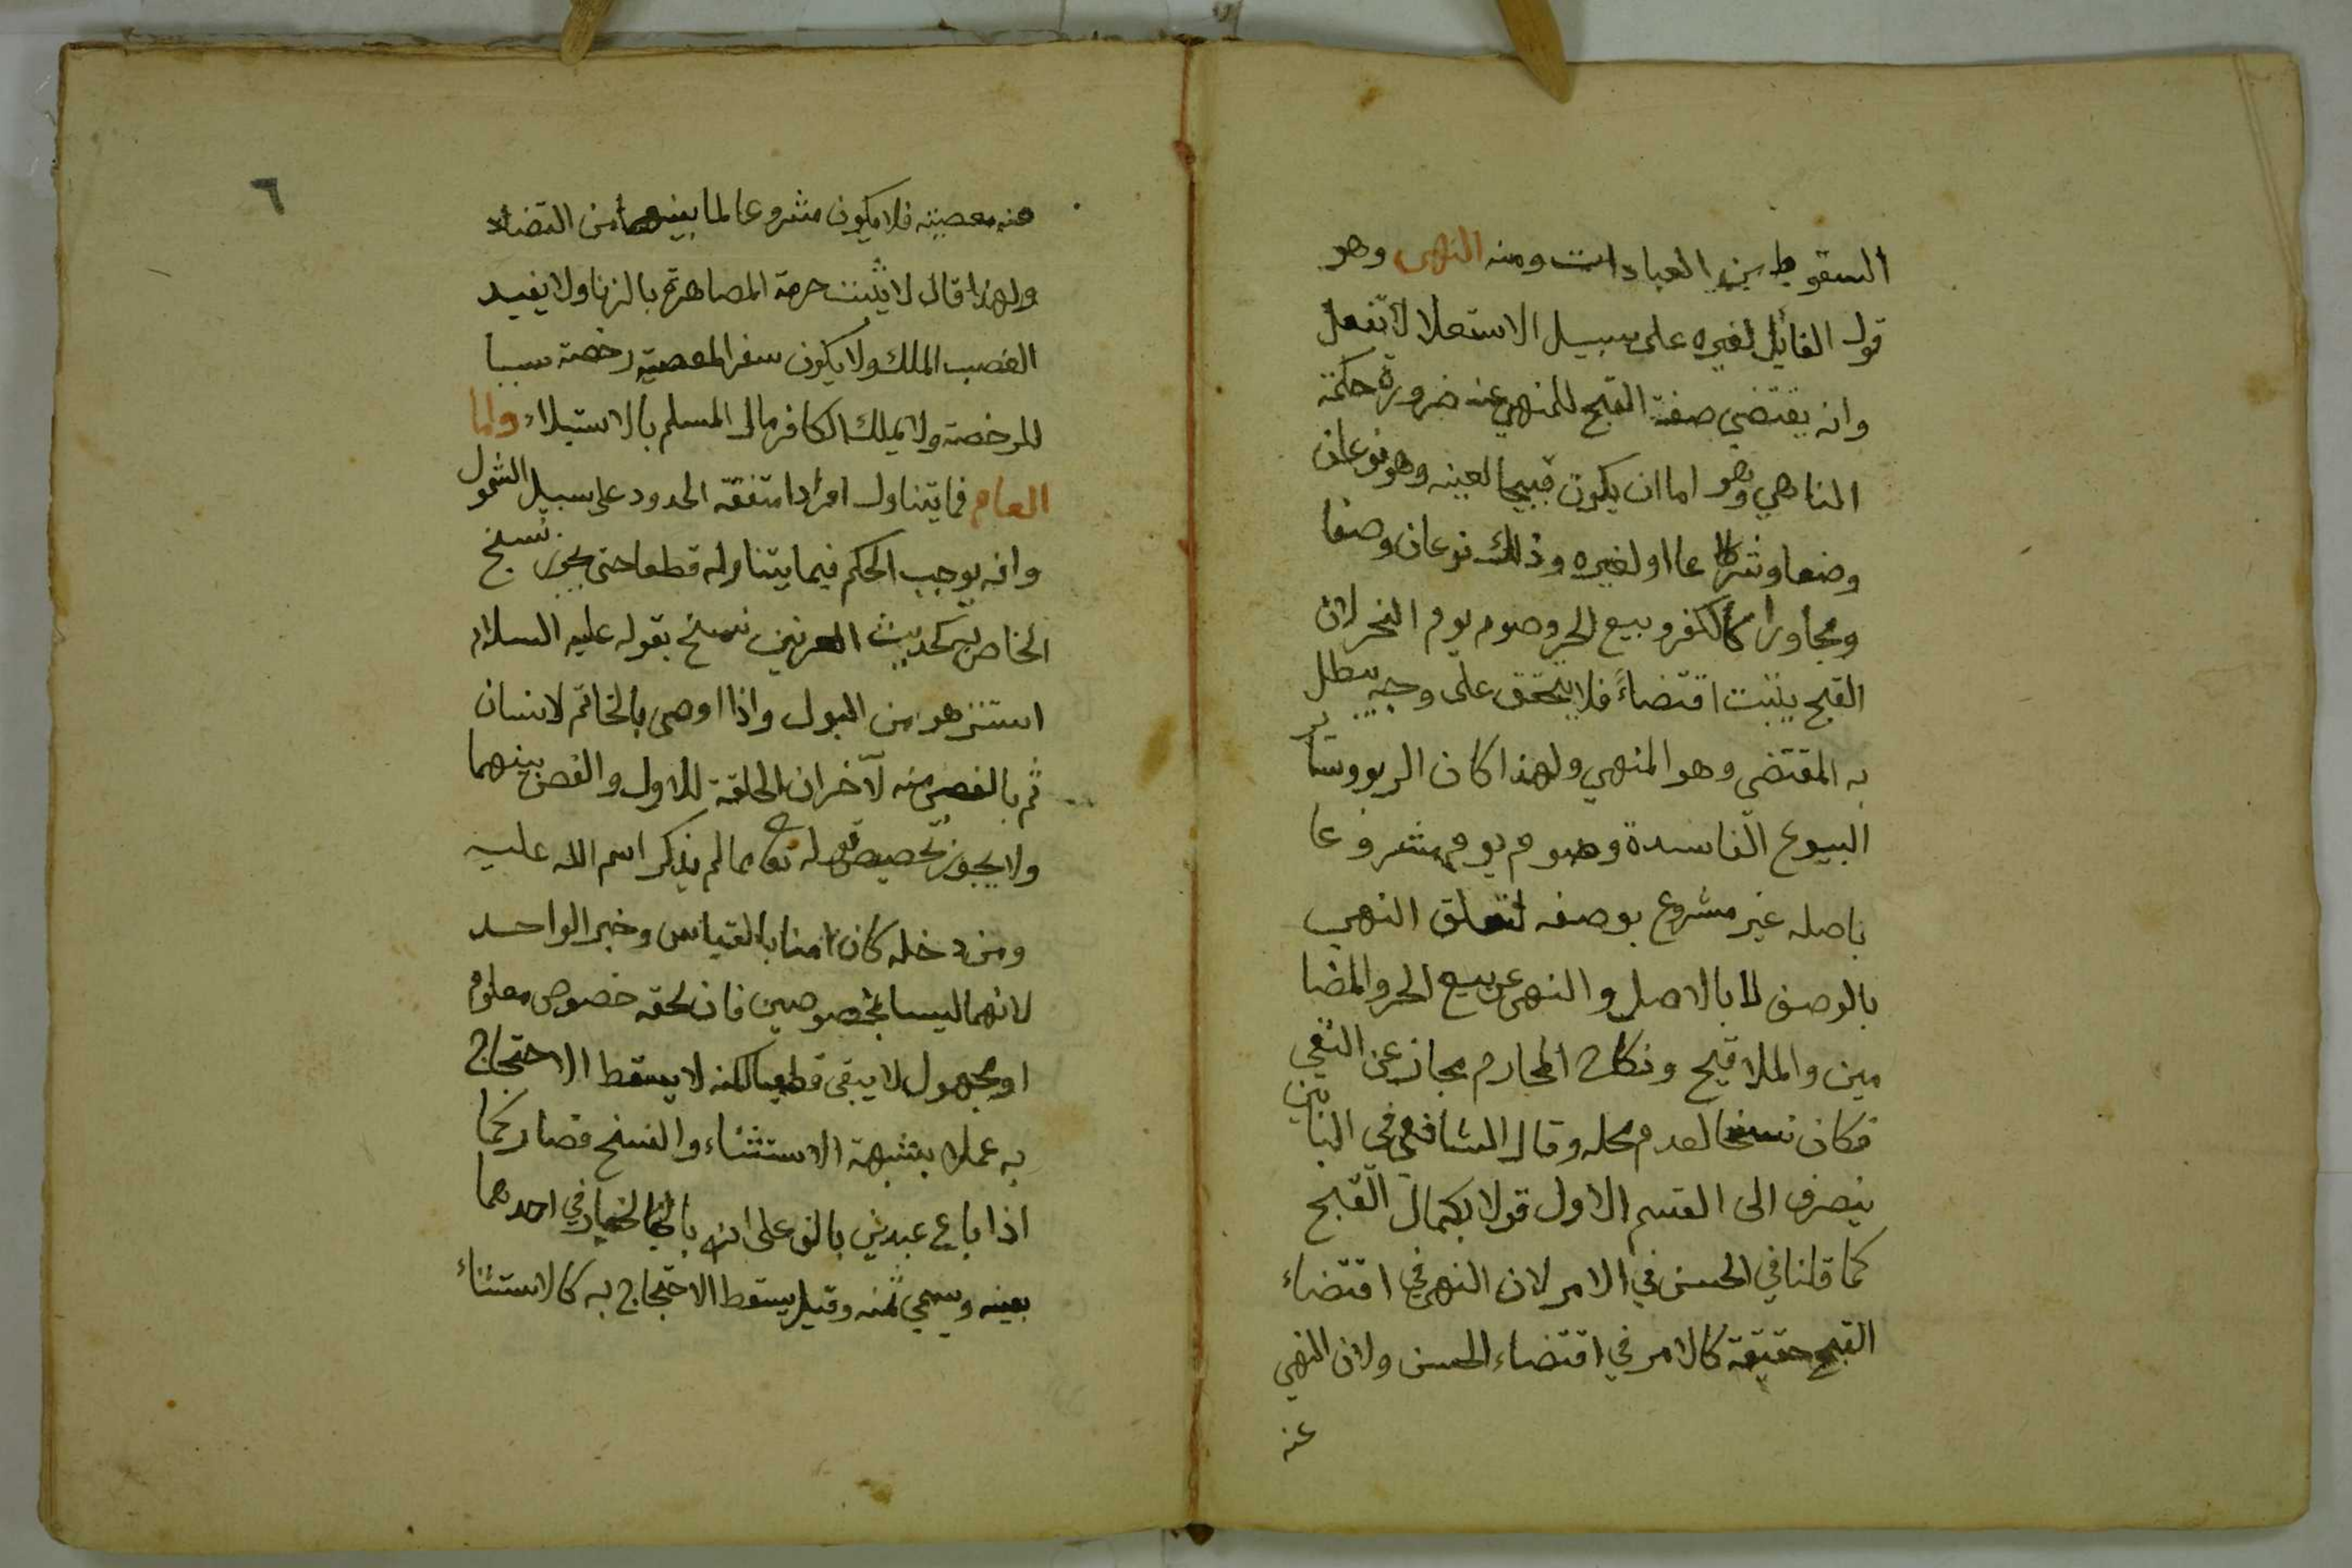 السقوط من العبادات ومنه النهى وهو
قول القائل لغيره على سبيل الاستعلا لا تفعل
وانه يقتضي صفة القبح للمنهي عنه ضرورة حكمة
الناهي وهو اما ان يكون قبيحا لعينه وهو نوعان
وضعا وشرعا او لغيره وذلك نوعان وصفا
ومجاورا كالكفر وبيع الحر وصوم يوم النحر لان
القبح يثبت اقتضاءً فلا يتحقق على وجه يبطل
به المقتضي وهو المنهي ولهذا كان الربو وسائر
البيوع الفاسدة وصوم يوم مشروعا
باصله غير مشروع بوصفه لتعلق النهي
بالوصف لا بالاصل والنهى عن بيع الحر والمضا
مين والملاقيح ونكاح المحارم مجاز عن النفي
فكان نسخا لعدم محله وقال الشافعي في البابين
ينصرف الى القسم الاول قولا بكمال القبح
كما قلنا في الحسن في الامر لان النهي في اقتضاء
القبح حقيقة كالامر في اقتضاء الحسن ولان النهي
عنه
٦
عنه معصيته فلا يكون مشروعا لما بينهما من التضاد
ولهذا قال لا يثبت حرمة المصاهرة بالزنا ولا يفيد
الغصب الملك ولا يكون سفر المعصية رخصة سببا
للرخصة ولا يملك الكافر مال المسلم بالاستيلاء واما
العام فما يتناول افرادا متفقة الحدود على سبيل الشمول
وانه يوجب الحكم فيما يتناوله قطعا حتى يجوز نسخ
الخاص به كحديث العرنين نسخ بقوله عليه السلام
استنزهو من البول واذا اوصى بالخاتم لانسان
ثم بالفص منه لآخر ان الحلقة للاول والفص بينهما
ولا يجوز تخصيص قوله تع مما لم يذكر اسم الله عليه
ومن دخله كان امنا بالقياس وخبر الواحد
لانهما ليسا بمخصوصين فان لحقه خصوص معلوم
او مجهول لا يبقى قطعيا لكنه لا يسقط الاحتجاج
به عملا بشبهة الاستثناء والنسخ فصار كما
اذا باع عبدين بالف على انه بالخيار في احدهما
بعينه ويسمي ثمنه وقيل يسقط الاحتجاج به كالاستثناء